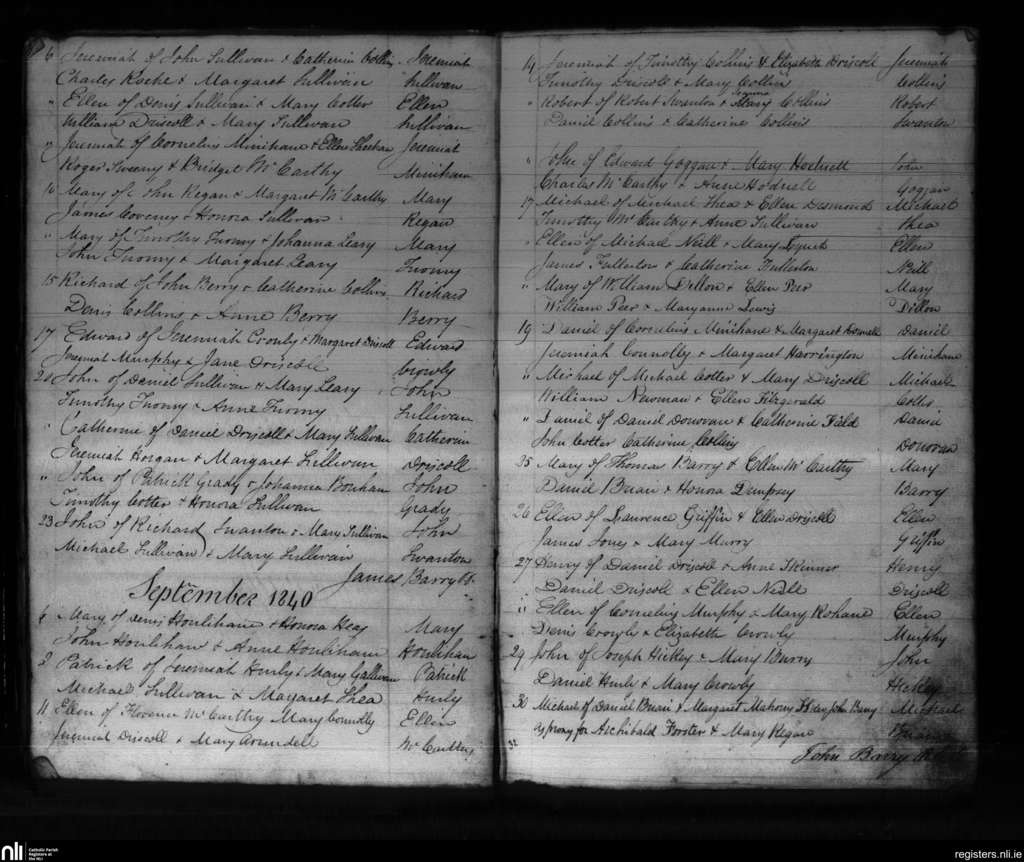 6 Jeremiah of John Sullivan & Catherin Collins Jeremiah
Charles Roche & Margaret Sullivan Sullivan
" Ellen of Denis Sullivan & Mary Cotter Ellen
William Driscoll & Mary Sullivan Sullivan
9 Jeremiah of Cornelius Minihane & Ellen Sheehan Jeremiah
Roger Sweeny & Bridget McCarthy Minihane
10 Mary of John Regan & Margaret McCarthy Mary
James Coveney & Honora Sullivan Regan
" Mary of Timothy Twomy & Johanna Leary Mary
John Twomy & Margaret Leary Twomy
15 Richard of John Berry & Catherine Collins Richard
Denis Collins & Anne Berry Berry
17 Edward of Jeremiah Crowly & Margaret Driscoll Edward
Jeremiah Murphy & Jane Driscoll Crowly
20 John of Daniel Sullivan & Mary Leary John
Timothy Twomy & Anne Twomy Sullivan
" Catherine of Daniel Driscoll & Mary Sullivan Catherine
Jeremiah Horgan & Margaret Sullivan Driscoll
" John of Patrick Grady & Johanna Bonhan John
Timothy Cotter & Honora Sullivan Grady
23 John of Richard Swanton & Mary Sullivan John
Michael Sullivan & Mary Sullivan Swanton
James Barry
September 1840
Mary of Denis Houlihane & Honora Keay Mary
John Houlihan & Anne Houlihan Houlihan
2 Patrick of Jeremiah Hurly & Mary Gallivan Patrick
Michael Sullivan & Magaret Shea Hurly
11 Ellen of Florence McCarthy Mary Connolly Ellen
Jeremiah Driscoll & Mary Arundell McCarthy
14 Jeremiah of Timothy Collins & Elizabeth Driscoll Jeremiah
Timothy Driscoll & Mary Collins Collins
" Robert of Robert Swanton & Mary Collins Robert
Daniel Collins & Catherine Collins Swanton
" John of Edward Goggan & Mary Hodnett John
Charles McCarthy & Anne Hodnett Goggan
17 Michael of Michael Shea & Ellen Desmond Michael
Timothy McCarthy & Anne Sullivan Shea
" Ellen of Michael Neill & Mary Lynch Ellen
James Fullerton & Catherine Fullerton Neill
" Mary of William Dillon & Ellen Peer Mary
William Peer & Maryanne Lewis Dillon
19 Daniel of Cornelius Minihane & Margaret Daniel
Jeremiah Connolly & Margaret Harrington Minihane
" Michael of Michael Cotter & Mary Driscoll Michael
William Newman & Ellen Fitzgerald Cotter
" Daniel of Daniel Donovan & Catherine Field Daniel
John Cotter Catherine Collins Donovan
25 Mary of Thomas Barry & Ellen McCarthy Mary
Daniel Brian & Honora Dempsey Barry
26 Ellen of Laurence Griffin & Ellen Driscoll Ellen
James Jones & Mary Murry Griffin
27 Henry of Daniel Driscoll & Anne Skinner Henry
Daniel Driscoll & Ellen Neill Driscoll
" Ellen of Cornelius Murphy & Mary Kohane Ellen
Denis Crowly & Elizabeth Crowly Murphy
29 John of Joseph Hickey & Mary Burry John
Daniel Hurly & Mary Crowly Hickey
30 Michael of Daniel Brian & Margaret Mahony John Barry Michael
as proxy for Archibald Forster & Mary Regan Brian
32
John Barry
nli
Catholic Parish
Registers at
the NLI
registers.nli.ie